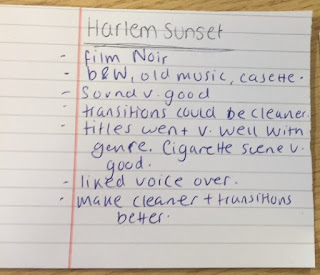 Harlem Sunset
- film Noir
- b&W, old music, casette.
- Sound v. good
- transitions could be cleaner.
- titles went v. well with
genre. Cigarette scene v.
good.
- liked voice over.
- make cleaner + transitions
better.